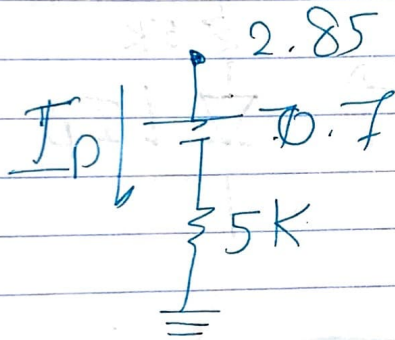 2.85
I_D
0.7
5K